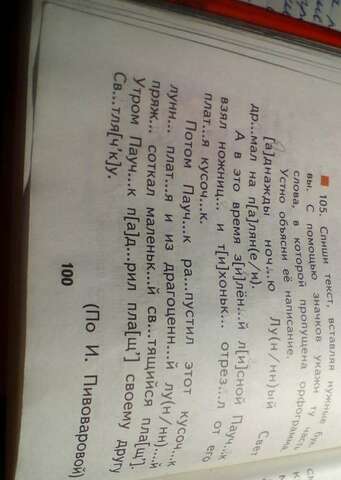 105. Спиши текст, вставляя нужные бук
вы. С помощью значков укажи ту часть
слова, в которой пропущена орфограмма
Устно объясни её написание.
[а]днажды ноч...ю Лу(н / нн)ый Свет
др...мал на п[а]лян(е/и).
А в это время з[и]лён...й л[и]сной Пауч...к
взял ножниц... и т[и]хоньк... отрез...л от его
плат...я кусоч...к.
Потом Пауч...к ра...пустил этот кусоч...к
лунн... плат...я и из драгоценн...й лу(н / нн)...й
пряж... соткал маленьк...й св...тящийся пла[щ'].
Утром Пауч...к п[а]д...рил пла[щ'] своему другу
Св...тля[ч'к]у.
(По И. Пивоваровой)
100